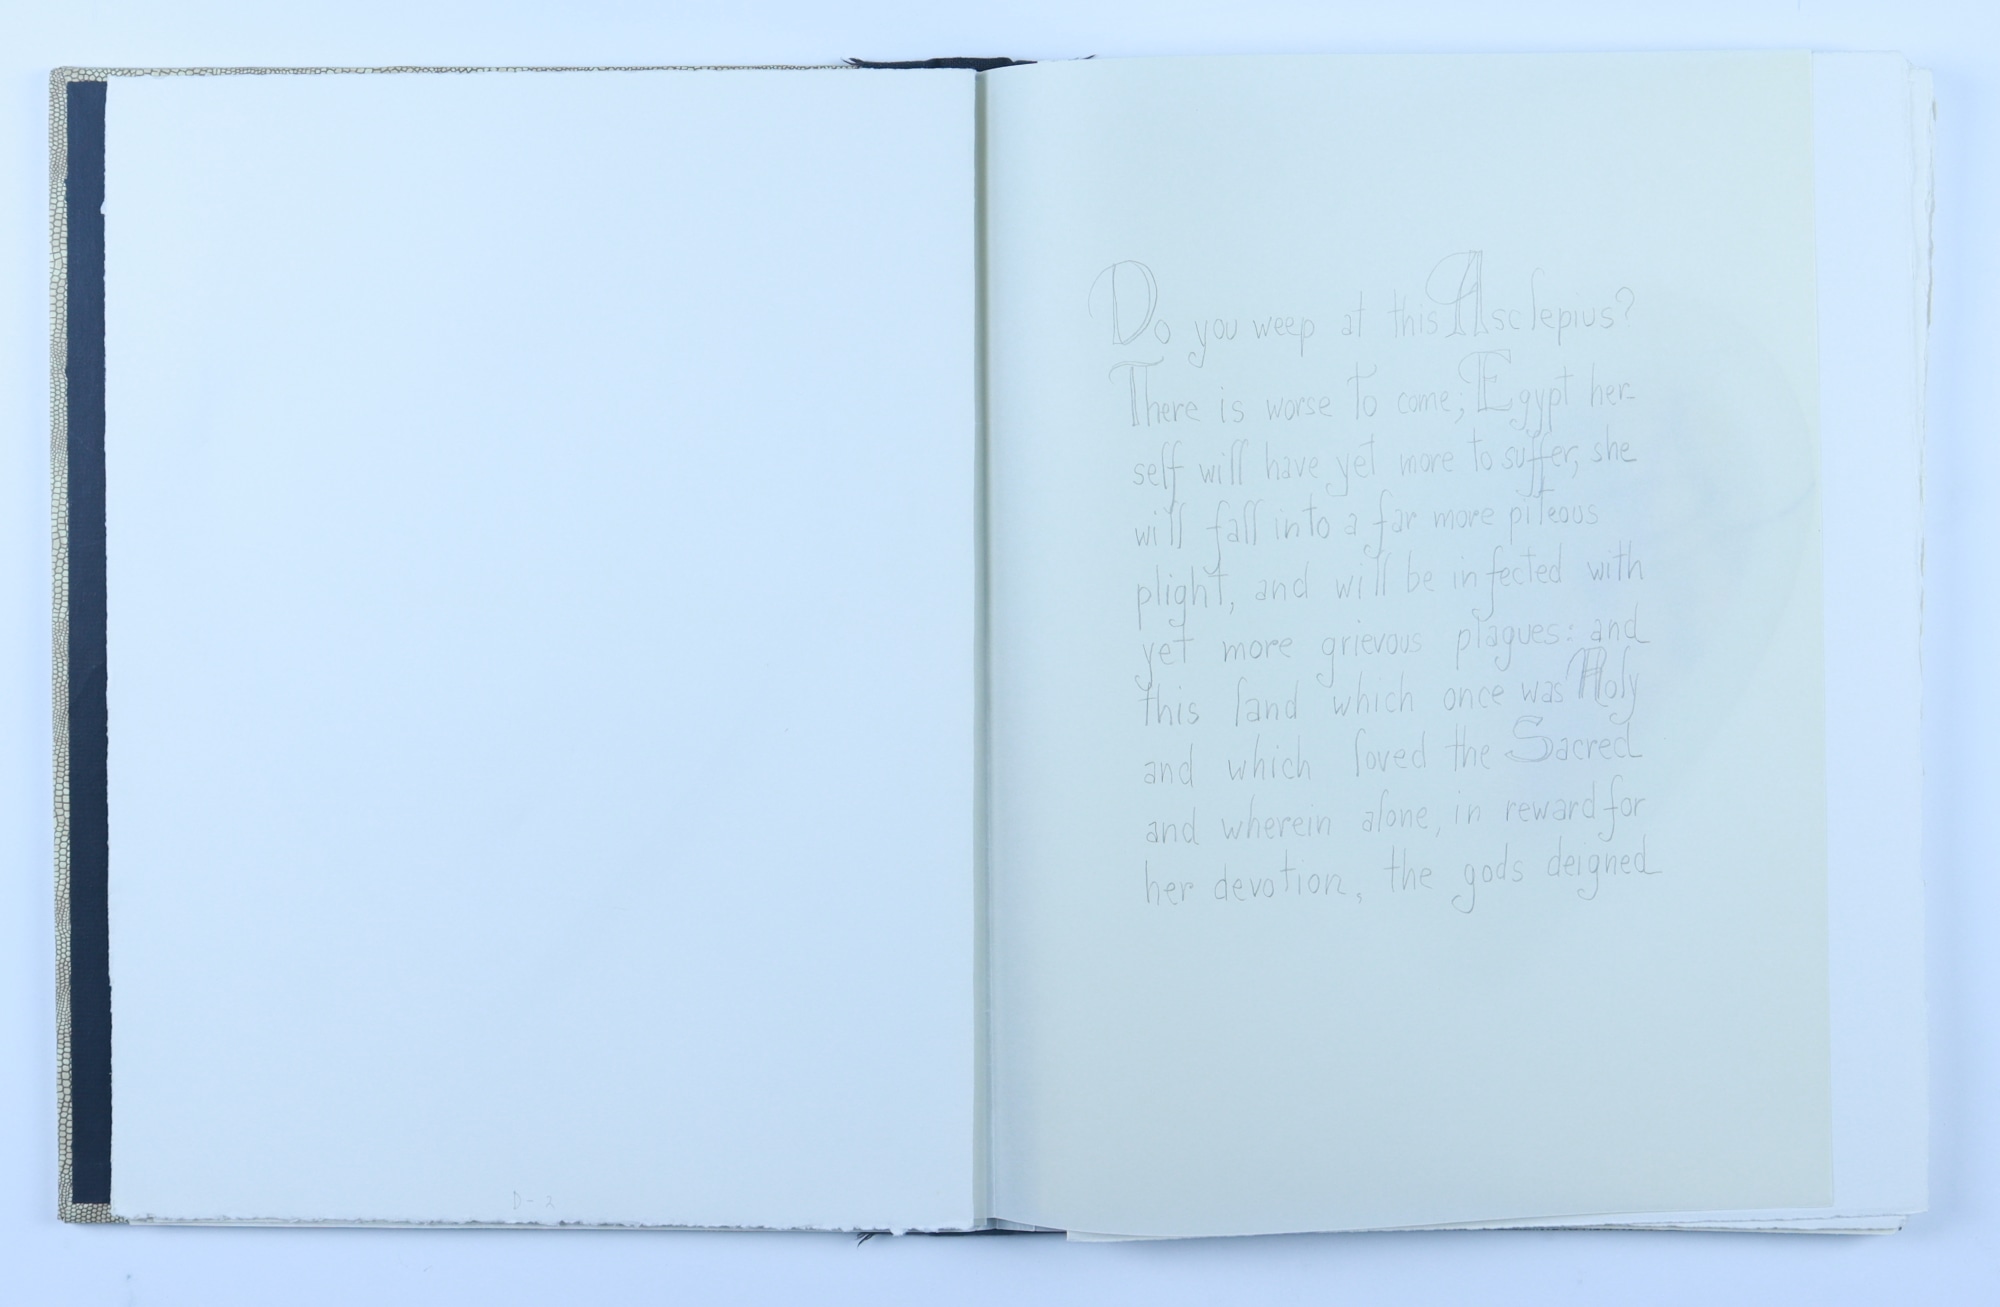 D-2
Do you weep at this Asclepius?
There is worse to come; Egypt her-
self will have yet more to suffer, she
will fall into a far more piteous
plight, and will be infected with
yet more grievous plagues: and
this land which once was Holy
and which loved the Sacred
and wherein alone, in reward for
her devotion, the gods deigned